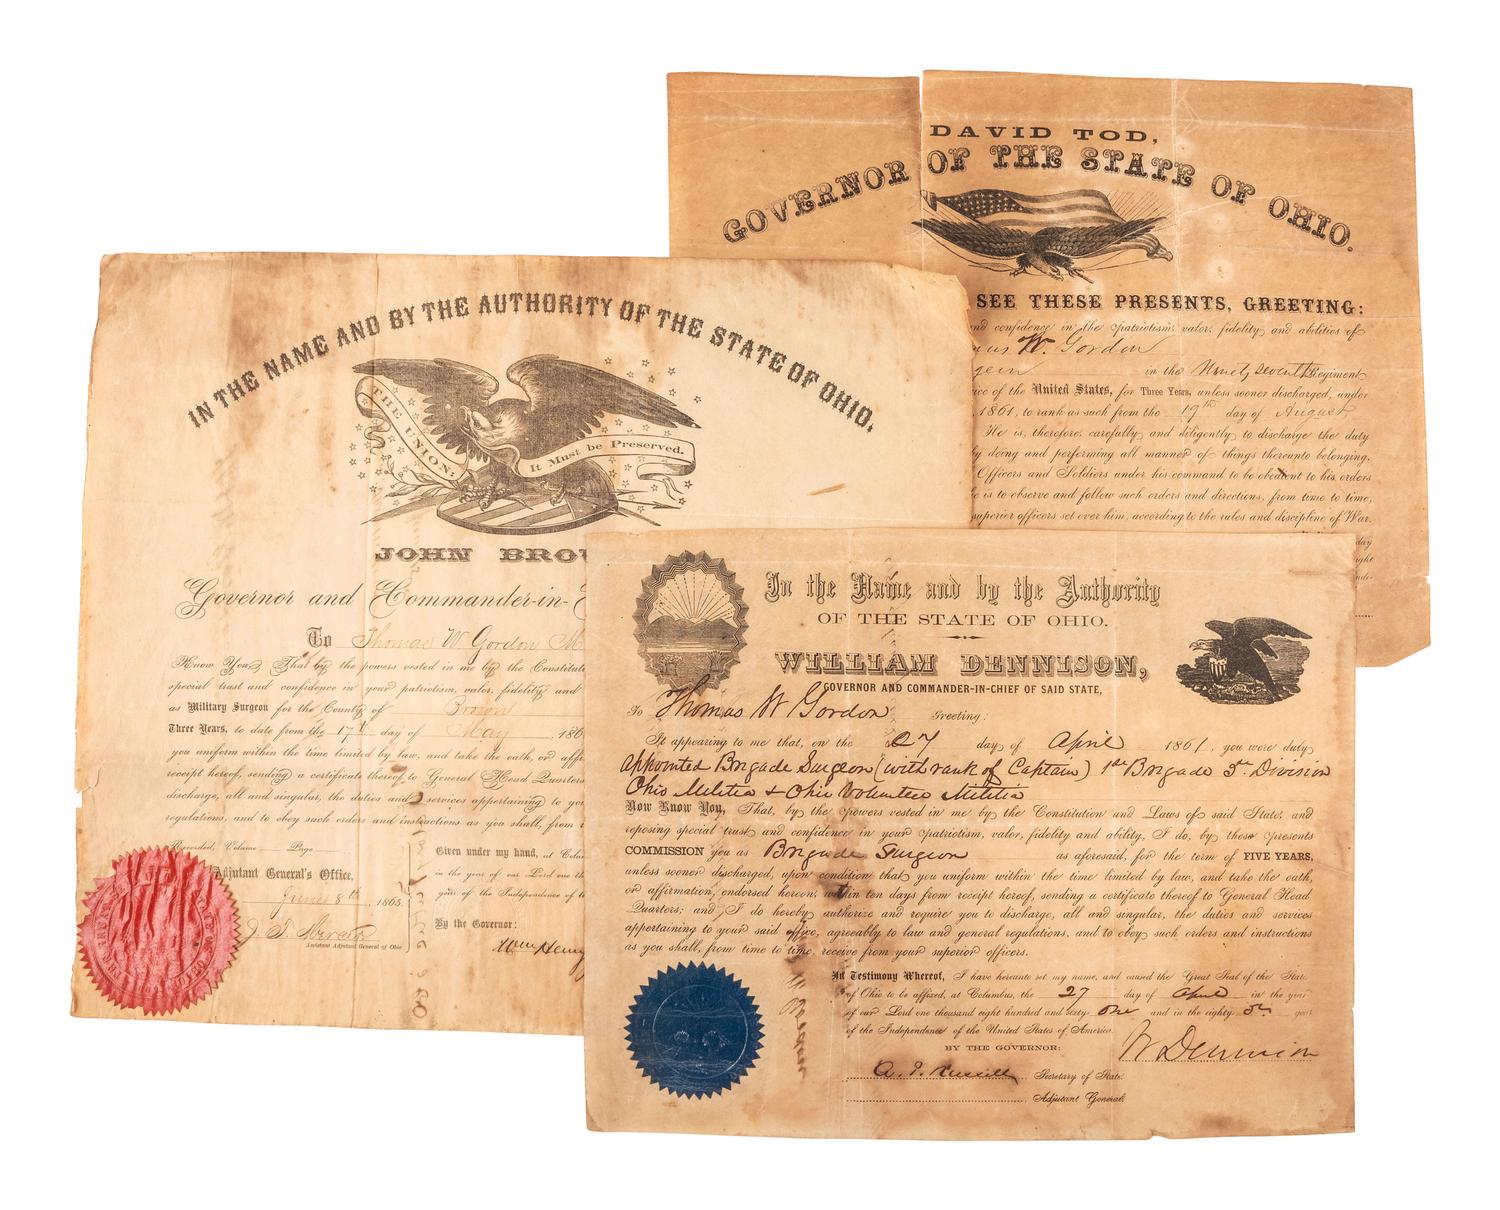 DAVID TOD,
GOVERNOR OF THE STATE OF OHIO.
SEE THESE PRESENTS, GREETING:
and confidence in the patriotism, valor, fidelity and abilities of
W. Gordon
in the Ninety Seventh Regiment
of the United States, for Three Years, unless sooner discharged, under
1861, to rank as such from the 19th day of August
He is, therefore, carefully and diligently to discharge the duty
by doing and performing all manner of things thereunto belonging.
Officers and Soldiers under his command to be obedient to his orders
is to observe and follow such orders and directions, from time to time,
superior officers set over him, according to the rules and discipline of War.
day
IN THE NAME AND BY THE AUTHORITY OF THE STATE OF OHIO.
THE UNION:
It Must be Preserved.
JOHN BRO
Governor and Commander-in-
To Thomas W Gordon M
Know You, That by the powers vested in me by the Constitut
special trust and confidence in your patriotism, valor, fidelity and
as Military Surgeon for the County of Brown
Three Years, to date from the 17th day of May 186
you uniform within the time limited by law, and take the oath, or aff
receipt hereof, sending a certificate thereof to General Head Quarters
discharge, all and singular, the duties and services appertaining to yo
regulations, and to obey such orders and instructions as you shall, from
Recorded, Volume Page
Adjutant General's Office,
June 8th 1865.
Assistant Adjutant General of Ohio
Given under my hand, at Colu
in the year of our Lord one th
year of the Independence of t
By the Governor:
Wm Henry
In the Name and by the Authority
OF THE STATE OF OHIO.
WILLIAM DENNISON,
GOVERNOR AND COMMANDER-IN-CHIEF OF SAID STATE,
To Thomas W Gordon Greeting:
It appearing to me that, on the 27 day of April 1861, you were duly
appointed Brigade Surgeon (with rank of Captain) 1st Brigade 3d Division
Ohio Militia & Ohio Volunteer Militia
Now Know You, That, by the powers vested in me by the Constitution and Laws of said State, and
reposing special trust and confidence in your patriotism, valor, fidelity and ability, I do, by these presents
COMMISSION you as Brigade Surgeon as aforesaid, for the term of FIVE YEARS,
unless sooner discharged, upon condition that you uniform within the time limited by law, and take the oath,
or affirmation, endorsed hereon, within ten days from receipt hereof, sending a certificate thereof to General Head
Quarters; and I do hereby authorize and require you to discharge, all and singular, the duties and services
appertaining to your said office, agreeably to law and general regulations, and to obey such orders and instructions
as you shall, from time to time, receive from your superior officers.
In Testimony Whereof, I have hereunto set my name, and caused the Great Seal of the State
of Ohio to be affixed, at Columbus, the 27 day of April in the year
of our Lord one thousand eight hundred and sixty One and in the eighty 5th year
of the Independence of the United States of America.
BY THE GOVERNOR:
W Dennison
Secretary of State.
Adjutant General.